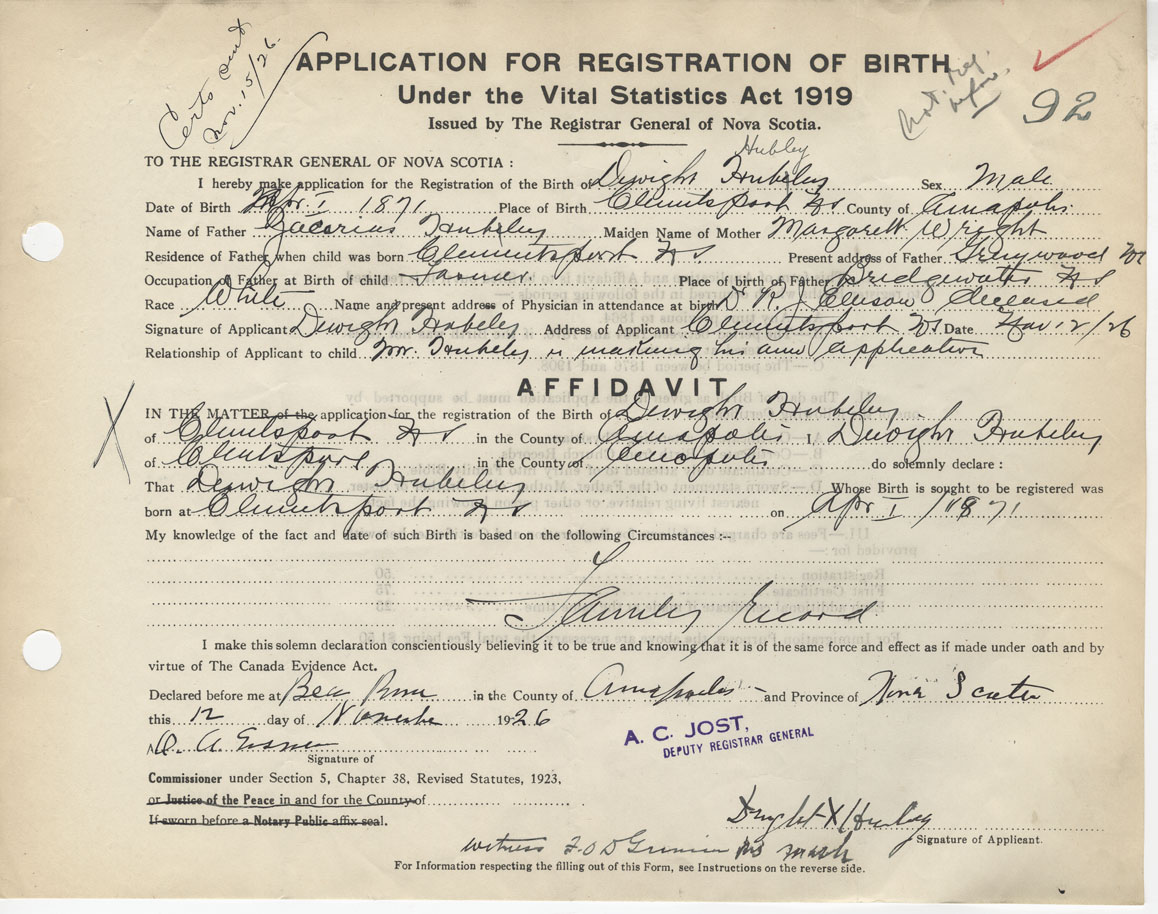 Certs sent
Nov. 15/26.
Not. Reg.
before.
92
APPLICATION FOR REGISTRATION OF BIRTH
Under the Vital Statistics Act 1919
Issued by The Registrar General of Nova Scotia.
Hubley
TO THE REGISTRAR GENERAL OF NOVA SCOTIA :
I hereby make application for the Registration of the Birth of Dwight Hubeley Sex Male
Date of Birth Apr. I 1871 Place of Birth Clemintsport NS County of Annapolis
Name of Father Zacarias Hubeley Maiden Name of Mother Margarett Wright
Residence of Father when child was born Clemmentsport NS Present address of Father Greywood NS
Occupation of Father at Birth of child Farmer Place of birth of Father Bridgewatter NS
Race White Name and present address of Physician in attendance at birth D. R. J. Ellison Deceased
Signature of Applicant Dwight Hubeley Address of Applicant Clemintsport NS. Date Nov 12/26
Relationship of Applicant to child Mr. Hubeley is making his own application
AFFIDAVIT
IN THE MATTER of the application for the registration of the Birth of Dwight Hubeley
X of Clemintsport NS in the County of Annapolis I, Dwight Hubeley
of Clemintsport in the County of Annapolis do solemnly declare :
That Dewight Hubeley Whose Birth is sought to be registered was
born at Clemintsport NS on Apr I / 1871
My knowledge of the fact and date of such Birth is based on the following Circumstances :--
Family Record
I make this solemn declaration conscientiously believing it to be true and knowing that it is of the same force and effect as if made under oath and by
virtue of The Canada Evidence Act.
Declared before me at Bear River in the County of Annapolis and Province of Nova Scotia
this 12 day of November 1926
A. C. JOST,
DEPUTY REGISTRAR GENERAL
A
Signature of
Commissioner under Section 5, Chapter 38, Revised Statutes, 1923,
or Justice of the Peace in and for the County of
If sworn before a Notary Public affix seal.
Dwight X Hubley
Signature of Applicant.
witness his mark
For Information respecting the filling out of this Form, see Instructions on the reverse side.